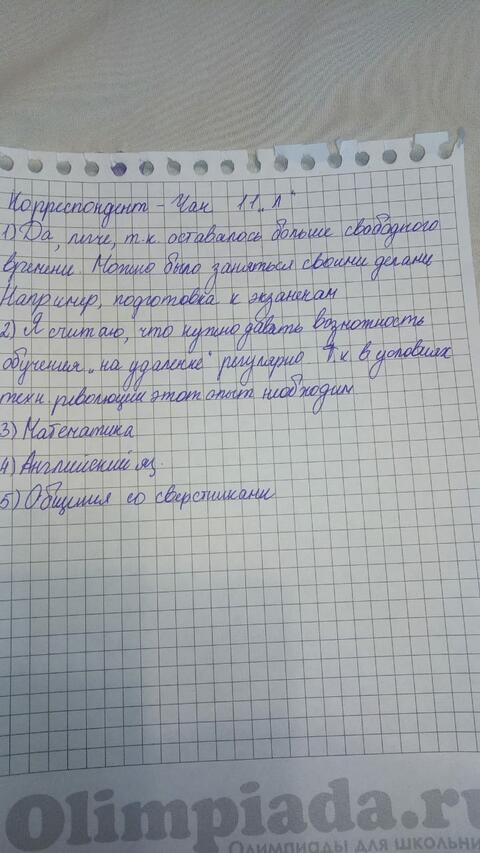 Корреспондент - Чак 11 „Л"
1) Да, легче, т.к. оставалось больше свободного
времени. Можно было заняться своими делами
Например, подготовка к экзамекам
2) Я считаю, что нужно давать возможность
обучения „на удаленке" регулярно Т.к в условиях
техн революции этот опыт необходим
3) Математика
4) Английский яз.
5) Общения со сверстниками
Olimpiada.ru
ОЛИМПИАДЫ ДЛЯ ШКОЛЬНИ